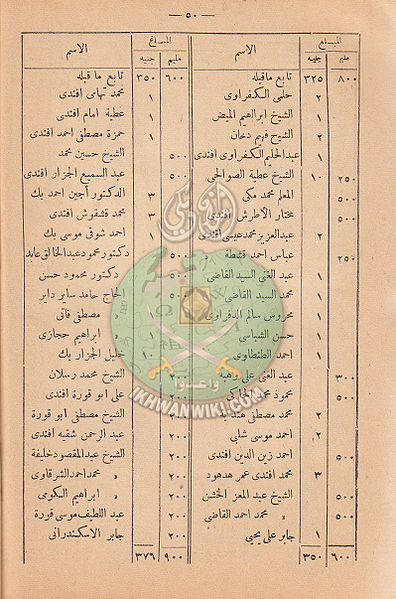 — ٥٠ —
المبلغ الاسم
مليم جنيه
٨٠٠ ٣٢٥ تابع ماقبله
٢ حلمى الكفراوى
١ الشيخ ابراهيم الميض
٢ الشيخ فهيم دخان
١ عبدالحليم الكفراوى افندى
٢٥٠ ١٠ الشيخ عطية الصوالحى
٥٠٠ المعلم محمد مكى
٥٠٠ مختار الأطرش افندى
٢ عبدالعزيز محمد عيسى افندى
٢٥٠ عباس احمد قشطة
١ عبد الغنى السيد القاضى
١ محمد السيد القاضى
١ محروس سالم الدفراوى
١ حسن الشباسى
١ احمد الطنطاوى
٣٠٠ عبد الغنى على وهبه
٥٠٠ محمود محمد
٢ محمد مصطفى هنديه
٢ احمد موسى شلبى
٥٠٠ احمد زين الدين افندى
٣ محمد افندى عمر هدهود
٥٠٠ الشيخ عبد المعز الخشن
٥٠٠ » محمد احمد القاضى
١ جابر على يحيى
٦٠٠ ٣٥٠
المبلغ الاسم
مليم جنيه
٦٠٠ ٣٥٠ تابع ماقبله
١ محمد تهامى افندى
١ عطية امام افندى
١ حمزة مصطفى احمد افندى
٥٠٠ الشيخ حسين محمد
٥٠٠ عبد السميع الجزار افندى
٣ الدكتور أجين احمد بك
٣ محمد قشقوش افندى
١ احمد شوقى موسى بك
٥٠٠ دكتور محمود عبدالخالق عابد
٥٠٠ دكتور محمود حسن
٥٠٠ الحاج حامد صابر داير
١ » مصطفى فاتى
١ » ابراهيم حجازى
١٠ خليل الجزار بك
الشيخ محمد رسلان
على ابو قورة افندى
٢٠٠ الشيخ مصطفى ابو قورة
٢٠٠ عبد الرحمن شقبه افندى
٢٠٠ الشيخ عبد المقصود خليفة
٢٠٠ » محمد احمد الشرقاوى
٢٠٠ » ابراهيم الكومى
٢٠٠ عبد اللطيف موسى قورة
٢٠٠ جابر الاسكندرانى
٩٠٠ ٣٧٦
وأعدوا
IKHWANWIKI.COM